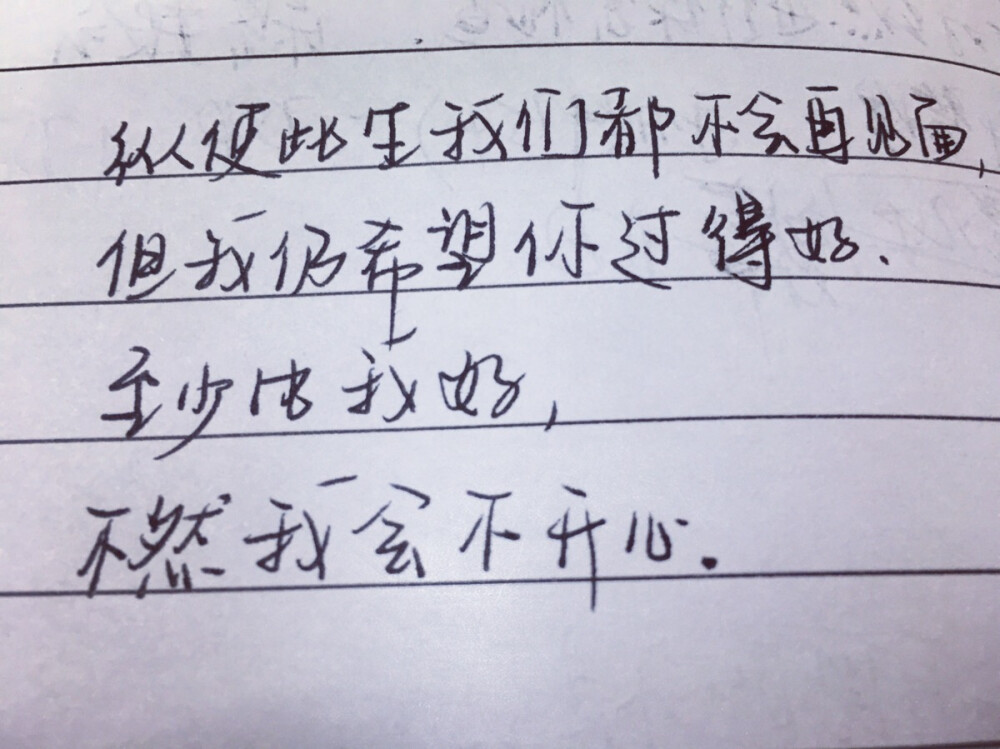 纵使此生我们都不会再见面,
但我仍希望你过得好.
至少比我好,
不然我会不开心.